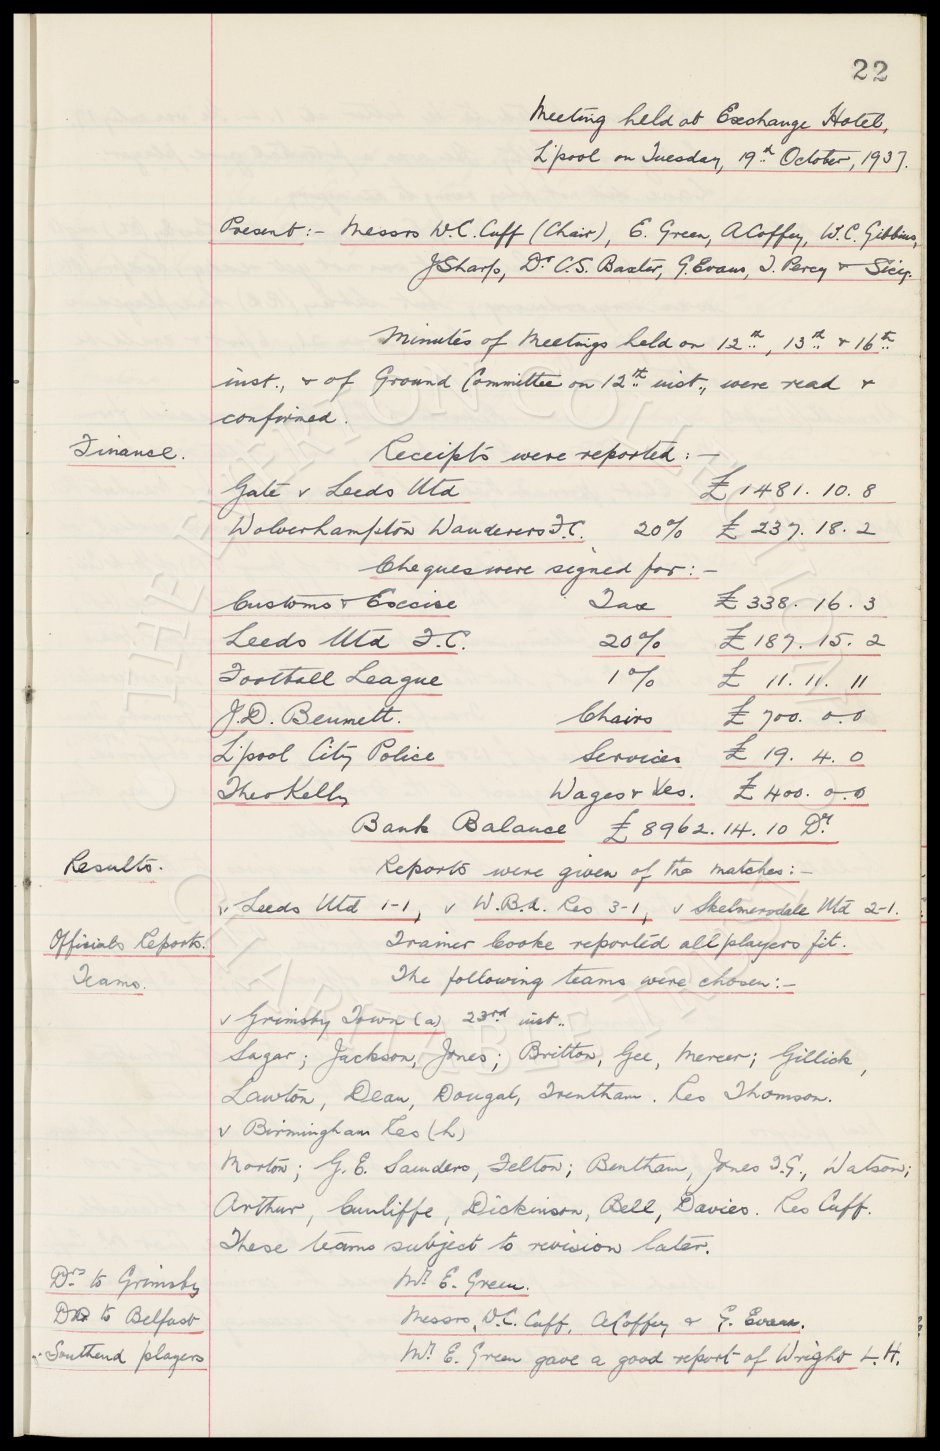 22
Meeting held at Exchange Hotel,
L'pool on Tuesday, 19th October, 1937.
Present:- Messrs W.C. Cuff (Chair), E. Green, A Coffey, W.C. Gibbins,
J Sharp, Dr C.S. Baxter, G. Evans, T. Percy & Secy.
Minutes of Meetings held on 12th, 13th & 16th
inst., & of Ground Committee on 12th inst., were read &
confirmed.
Finance. Receipts were reported:-
Gate v Leeds Utd £1481.10.8
Wolverhampton Wanderers F.C. 20% £237.18.2
Cheques were signed for:-
Customs & Excise Tax £338.16.3
Leeds Utd F.C. 20% £187.15.2
Football League 1% £11.11.11
J.D. Bennett. Chairs £700.0.0
L'pool City Police Services £19.4.0
Theo Kelly Wages & Xes. £400.0.0
Bank Balance £8962.14.10 Dr
Results. Reports were given of the matches:-
v Leeds Utd 1-1, v W.B.A. Res 3-1, v Skelmersdale Utd 2-1.
Officials Reports. Trainer Cooke reported all players fit.
Teams. The following teams were chosen:-
v Grimsby Town (a) 23rd inst.
Sagar; Jackson, Jones; Britton, Gee, Mercer; Gillick,
Lawton, Dean, Dougal, Trentham. Res Thomson.
v Birmingham Res (h)
Morton; G.E. Saunders, Felton; Bentham, Jones T.G., Watson;
Arthur, Cunliffe, Dickinson, Bell, Davies. Res Cuff.
These teams subject to revision later.
Drs to Grimsby Mr E. Green.
Drs to Belfast Messrs. W.C. Cuff, A Coffey & G. Evans.
Southend players Mr E. Green gave a good report of Wright L.H.
© THE EVERTON COLLECTION
CHARITABLE TRUST